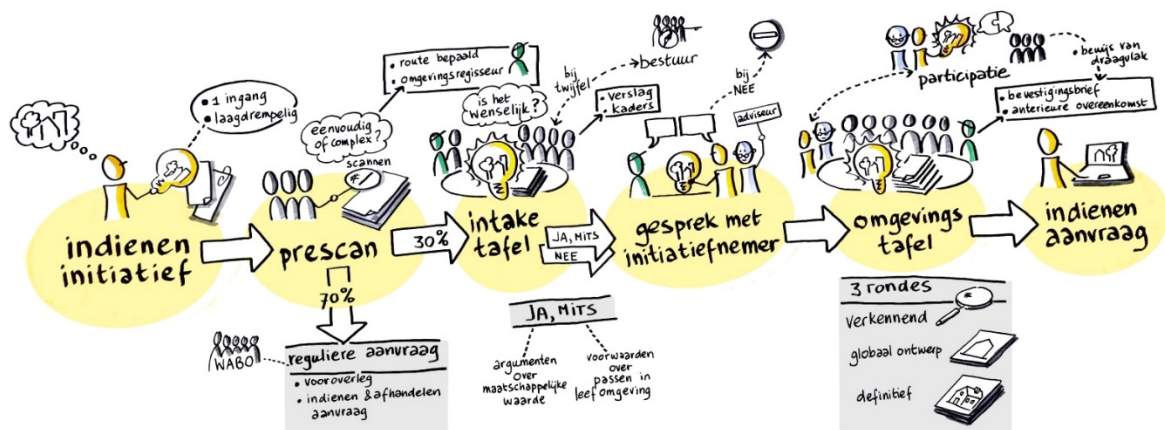 • 1 ingang
• laagdrempelig
indienen
initiatief
eenvoudig
of complex?
scannen
• route bepaald
• omgevingsregisseur
prescan
30%
70%
WABO
reguliere aanvraag
• vooroverleg
• indienen & afhandelen
aanvraag
is het
wenselijk?
bij
twijfel
bestuur
• verslag
• kaders
intake
tafel
JA, MITS
NEE
JA, MITS
argumenten
over
maatschappelijke
waarde
voorwaarden
over
passen in
leefomgeving
bij
NEE
adviseur
gesprek met
initiatiefnemer
participatie
• bewijs van
draagvlak
• bevestigingsbrief
• anterieure overeenkomst
omgevings
tafel
3 rondes
verkennend
globaal ontwerp
definitief
indienen
aanvraag